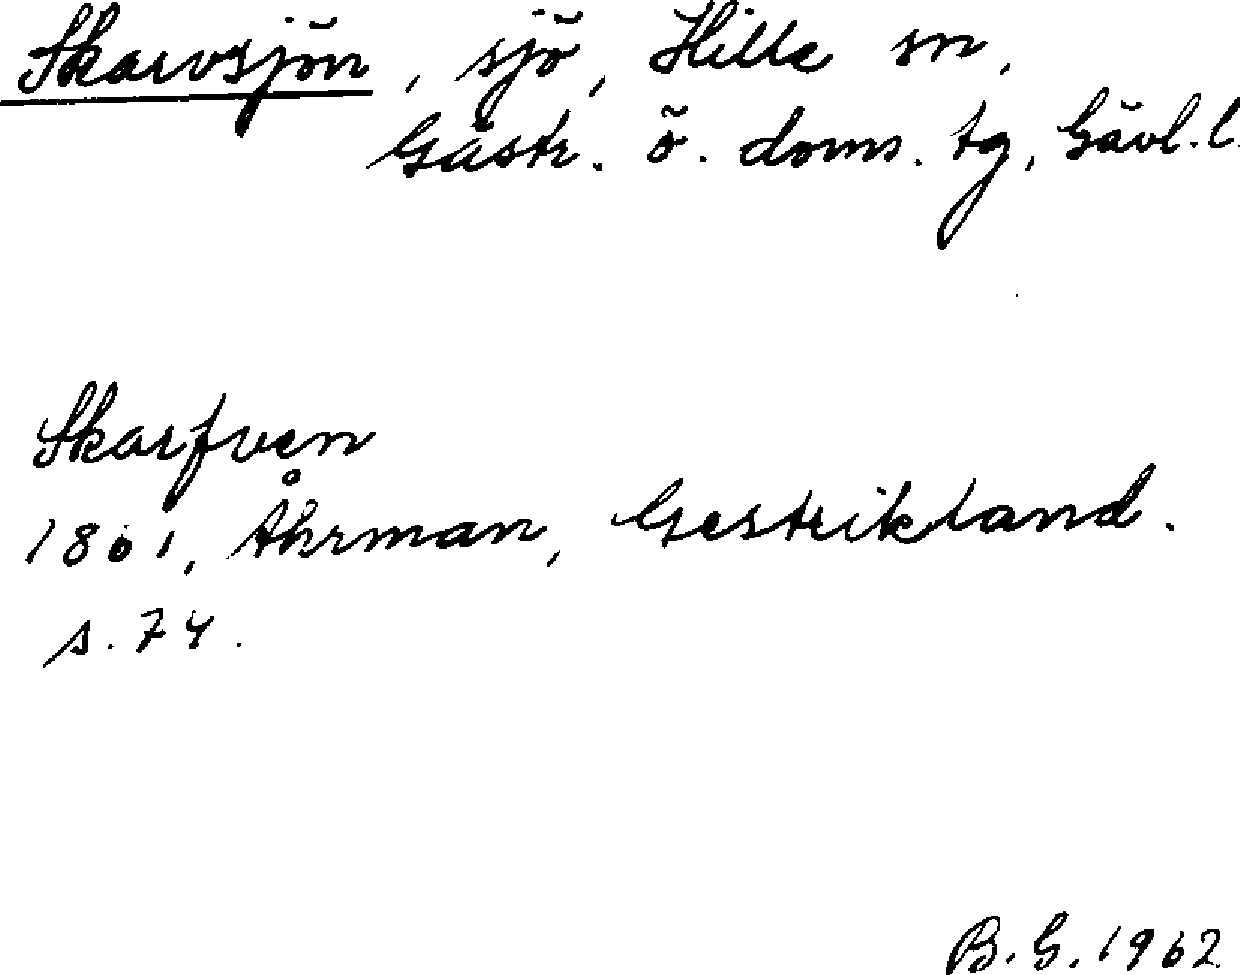 Skarvsjön, sjö, Hille sn,
Gästr. ö. doms. tg, Gävl. l.
Skarfven
1801, Åhrman, Gestrikland.
s. 74.
B. G. 1962